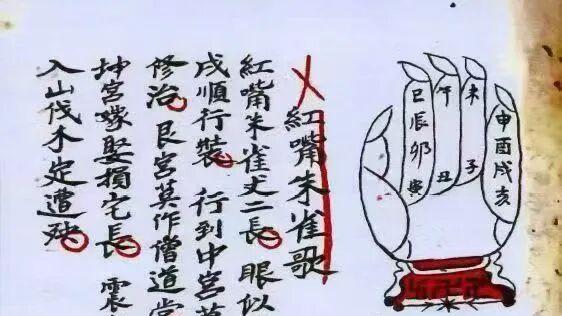 紅嘴朱雀歌
紅嘴朱雀丈二長 眼似
戌順行裝 行到中宮莫
修治 艮宮莫作僧道堂
坤宮嫁娶損宅長 震
入山伐木定遭殃
巳辰卯寅
午丑
未子
申酉戌亥